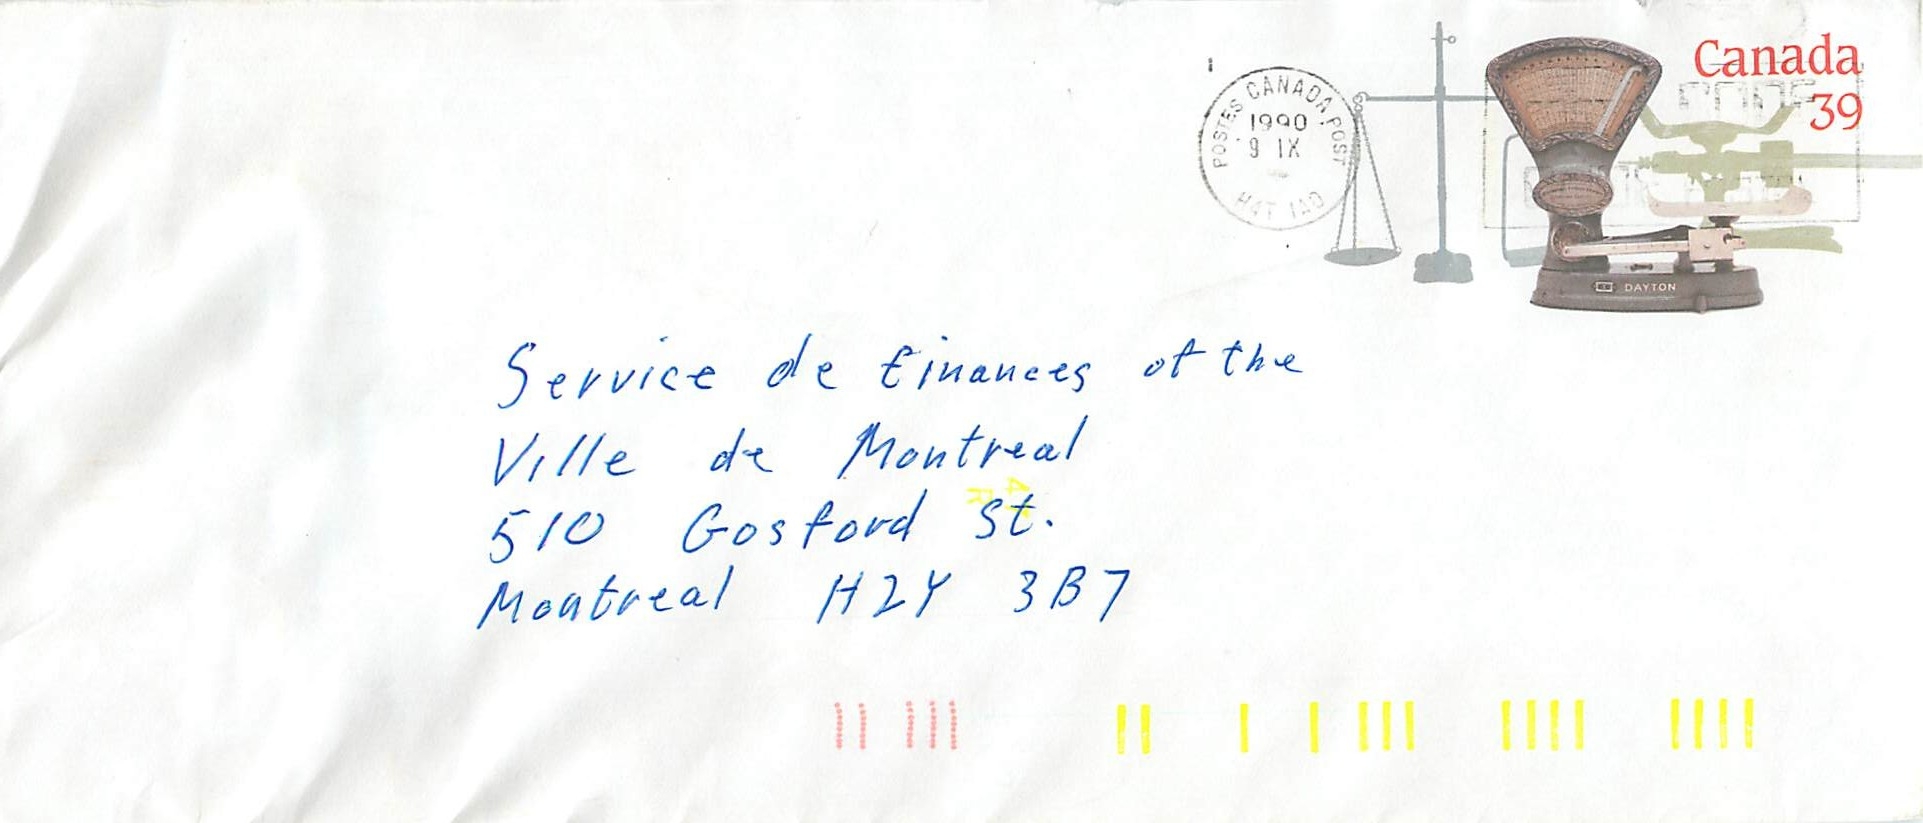 Canada
39
POSTES CANADA POST
1990
9 IX
H4T 1A0
CODE
DAYTON
Service de finances of the
Ville de Montreal
510 Gosford St.
Montreal H2Y 3B7
4
R